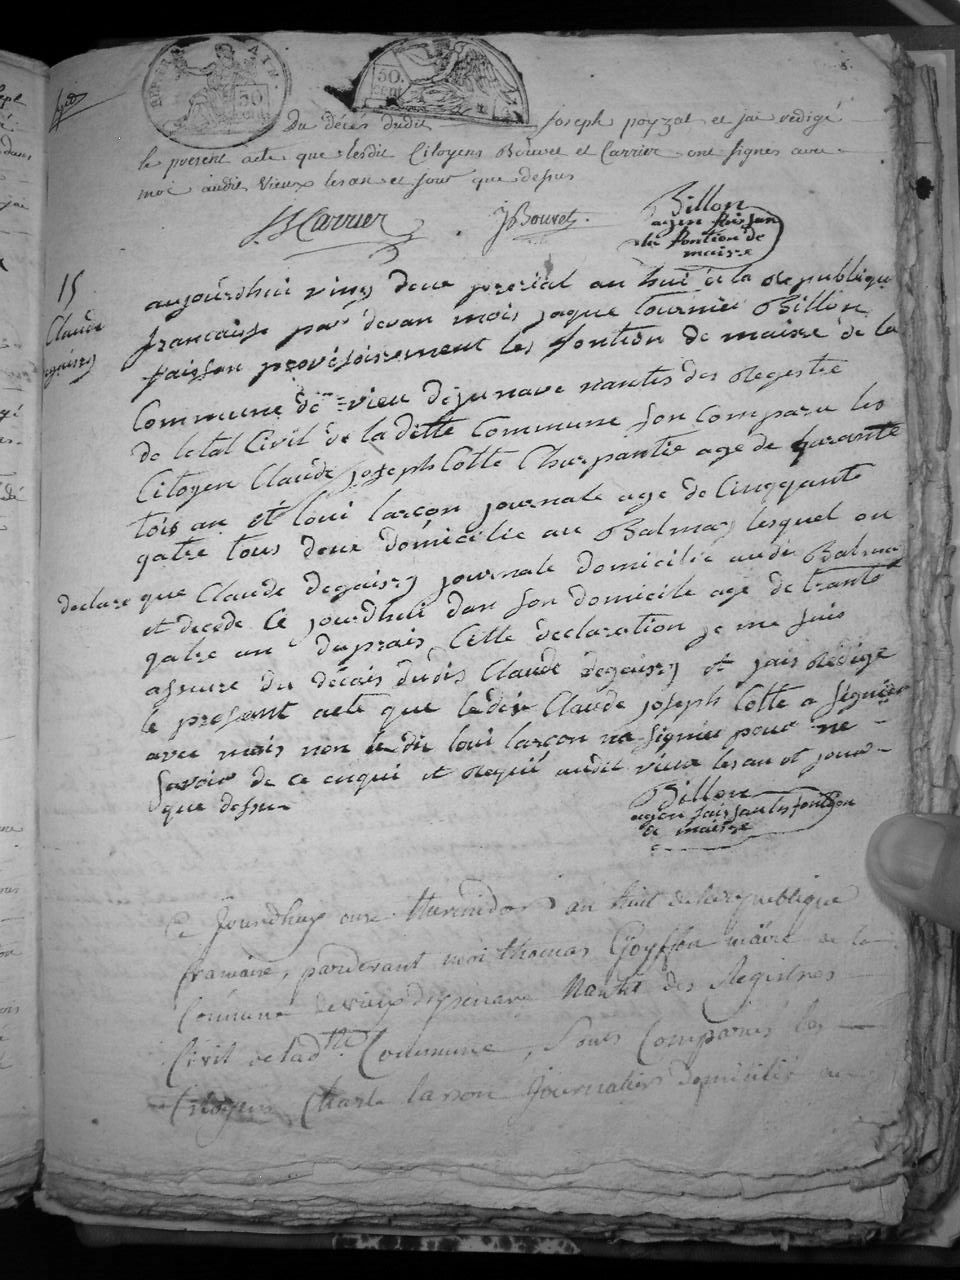 50 cent
50. cent
AIN
Du décès dudit Joseph poyzat et jai rédigé
le present acte que lesdit Citoyens Bouvet et Carrier ont signés avec
moi audit Vieux lesan et jour que dessus
Carrier JBouvet. Billon
agen faissan
les fontion de
maire
15
Claude
aujourdhui ving deux prerial an huit de la republique
francaisse par devan mois jaque tournier Billon
faissan provisoirement les fontion de maire de la
Commune de vieu dizenave nantes des Registre
de letat Civil de la ditte Commune son comparu les
Citoyen Claude joseph Cotte Charpantie age de karante
tois an et loui larcon journale age de Cinqqante
qatre tous deux domicilie au Balmay lesquel on
declare que Claude degaisy journale domicilie audit Balmay
et decede Ce jourdhui dan son domicile age de trante
qatre an daprais Cette declaration je me suis
assure du décais dudis Claude degaisy et jais Redige
le presant acte que ledis Claude joseph Cotte a signier
avec mois non le dit loui larcon na signier pour ne
savoir de ce enqui et Requi audit vieu lesan et jour
que dessus
Billon
agen faissan les fontion
de maire
Ce Jourdhuy onze thermidor an huit de la republique
francaise, pardevant moi thomas Goyffon maire de la
Commune de vieux dizenave Nantis des Registres
Civil de ladtte Commune, Sont Comparus les
Citoyens Charle larson Journalier domicilié au